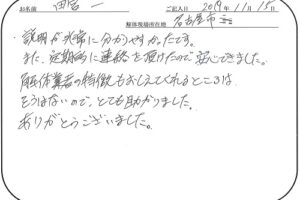 お名前 ご記入日 2019年11月15日
解体現場所在地 名古屋市
・説明が非常に分かりやすかったです。
また、定期的に連絡を頂けたので安心できました。
解体業者の特徴もおしえてくれるところは
そうはないので、とても助かりました。
ありがとうございました。